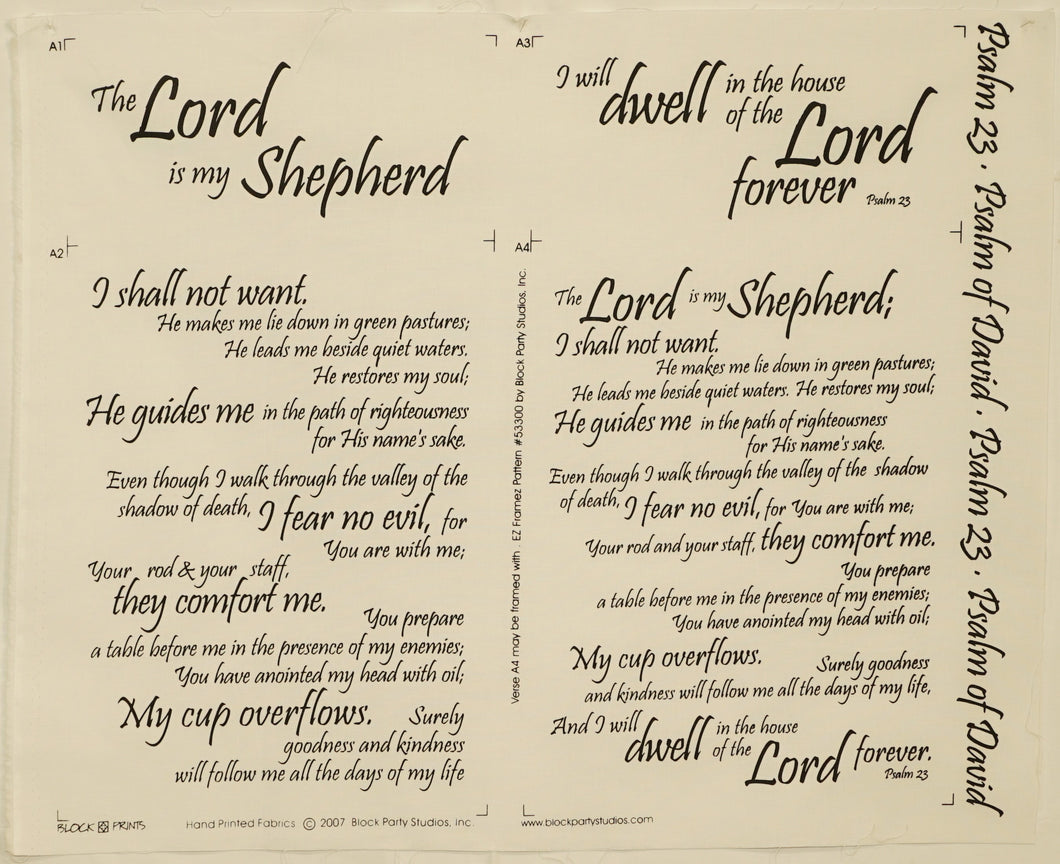 A1
The Lord
is my Shepherd
A2
I shall not want.
He makes me lie down in green pastures;
He leads me beside quiet waters.
He restores my soul;
He guides me in the path of righteousness
for His name's sake.
Even though I walk through the valley of the
shadow of death, I fear no evil, for
You are with me;
Your rod & your staff,
they comfort me.
You prepare
a table before me in the presence of my enemies;
You have anointed my head with oil;
My cup overflows. Surely
goodness and kindness
will follow me all the days of my life
BLOCK PRINTS
Hand Printed Fabrics © 2007 Block Party Studios, Inc.
Verse A4 may be framed with . EZ Framez Pattern #53300 by Block Party Studios, Inc.
A3
I will dwell in the house
of the Lord
forever Psalm 23
A4
The Lord is my Shepherd;
I shall not want.
He makes me lie down in green pastures;
He leads me beside quiet waters. He restores my soul;
He guides me in the path of righteousness
for His name's sake.
Even though I walk through the valley of the shadow
of death, I fear no evil, for You are with me;
Your rod and your staff, they comfort me.
You prepare
a table before me in the presence of my enemies;
You have anointed my head with oil;
My cup overflows. Surely goodness
and kindness will follow me all the days of my life,
And I will dwell in the house
of the Lord forever.
Psalm 23
www.blockpartystudios.com
Psalm 23 . Psalm of David . Psalm 23 . Psalm of David